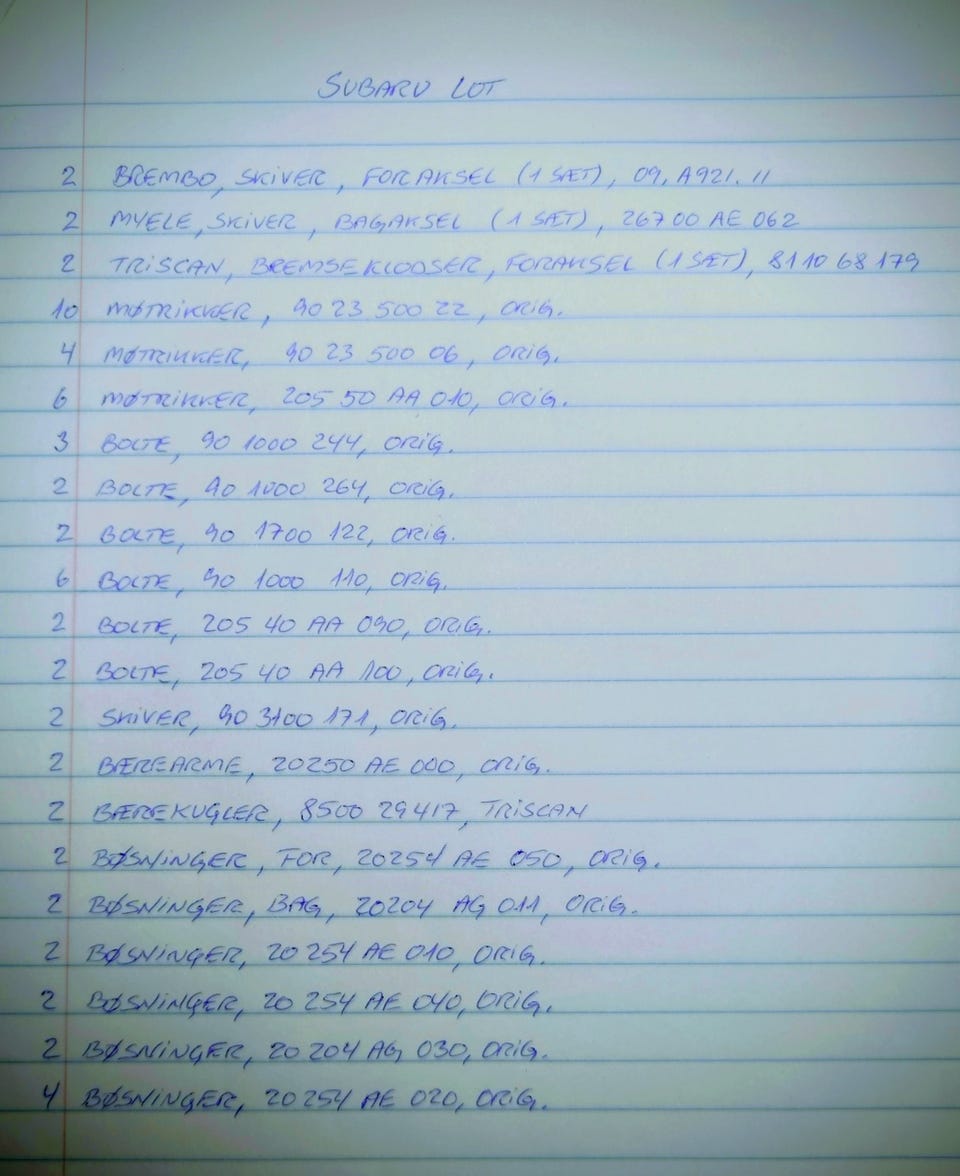 SUBARU LOT
2 BREMBO, SKIVER, FORAKSEL (1 SÆT), 09. A921. 11
2 MYELE, SKIVER, BAGAKSEL (1 SÆT), 26700 AE 062
2 TRISCAN, BREMSEKLODSER, FORAKSEL (1 SÆT), 8110 68 179
10 MØTRIKKER, 90 23 500 22, ORIG.
4 MØTRIKKER, 90 23 500 06, ORIG.
6 MØTRIKKER, 205 50 AA 010, ORIG.
3 BOLTE, 90 1000 244, ORIG.
2 BOLTE, 90 1000 264, ORIG.
2 BOLTE, 90 1700 122, ORIG.
6 BOLTE, 90 1000 110, ORIG.
2 BOLTE, 205 40 AA 090, ORIG.
2 BOLTE, 205 40 AA 100, ORIG.
2 SKIVER, 90 3100 171, ORIG.
2 BÆREARME, 20250 AE 000, ORIG.
2 BÆREKUGLER, 8500 29417, TRISCAN
2 BØSNINGER, FOR, 20254 AE 050, ORIG.
2 BØSNINGER, BAG, 20204 AG 011, ORIG.
2 BØSNINGER, 20 254 AE 010, ORIG.
2 BØSNINGER, 20 254 AE 040, ORIG.
2 BØSNINGER, 20 204 AG 030, ORIG.
4 BØSNINGER, 20 254 AE 020, ORIG.